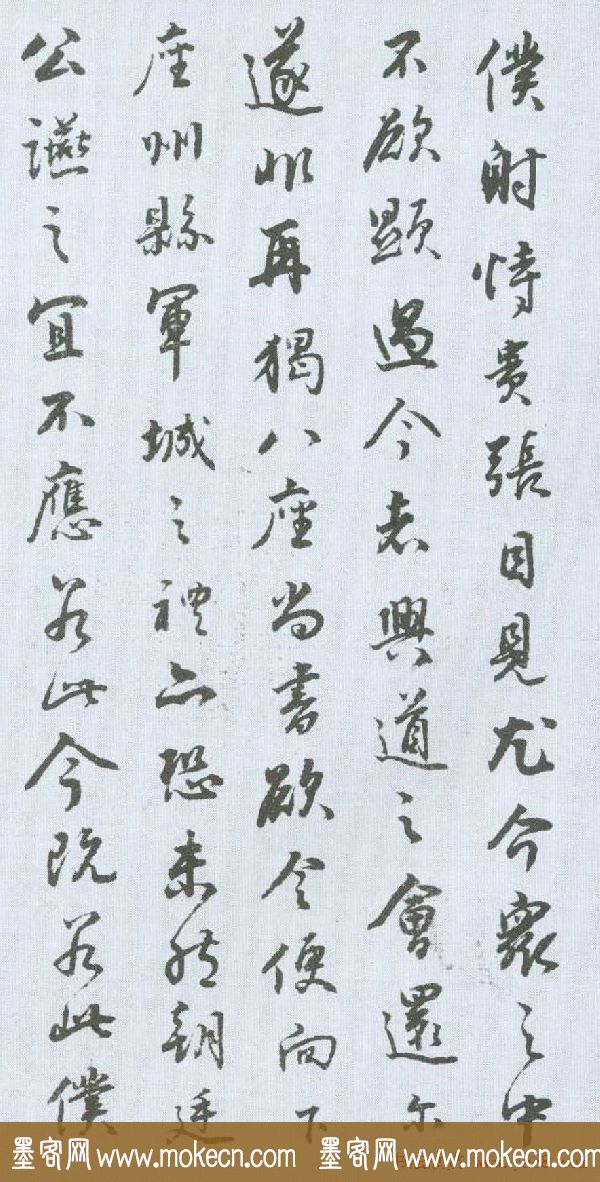 僕射恃貴張目見尤介衆之中
不欲顯過今者興道之會還尓
遂非再猲八座尚書欲令便向下
座州縣軍城之禮亦恐未然朝廷
公讌之宜不應若此今既若此僕
墨客网 www.mokecn.com 墨客网 www.mokecn.com